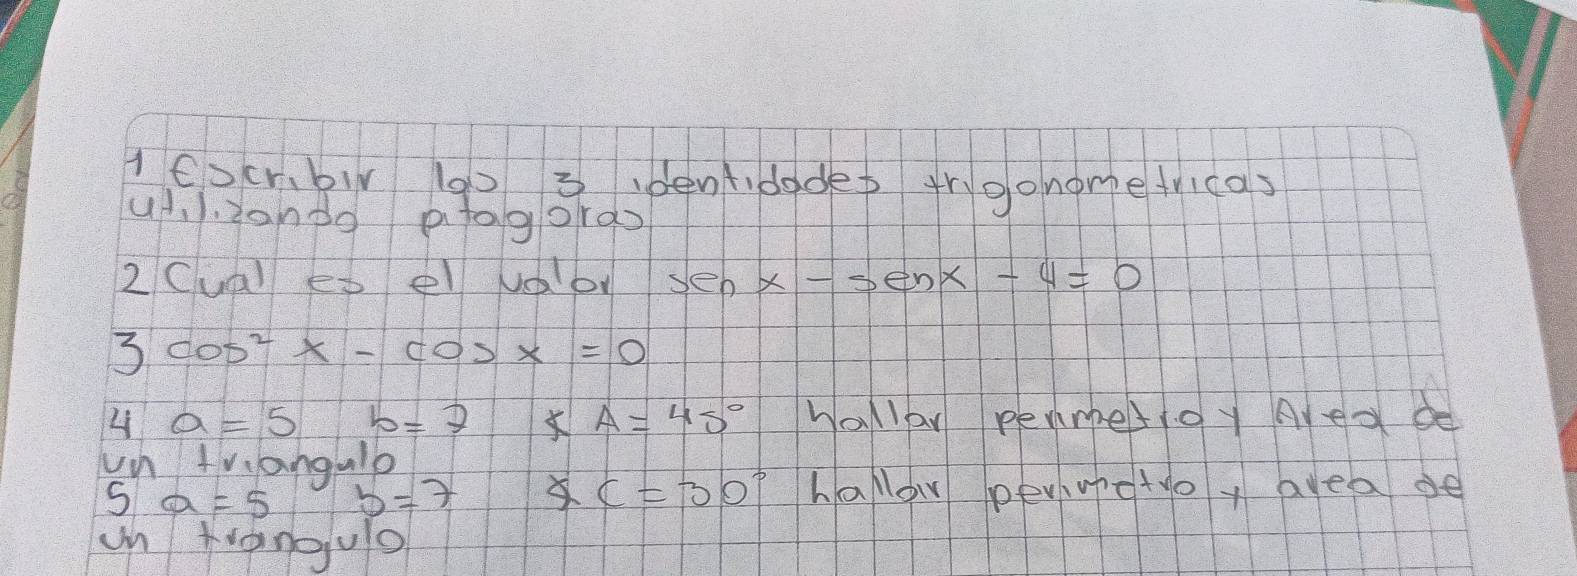 1 Escribir las 3 identidades trigonometricas
utilizando pitagoras
2 Cual es el valor sen x - sen x - 4 = 0
3 cos² x - cos x = 0
4 a = 5 b = 7 ∡ A = 45° hallar perimetro y Area de
un triangulo
5 a = 5 b = 7 ∡ C = 30° hallar perimetro y area de
un triangulo